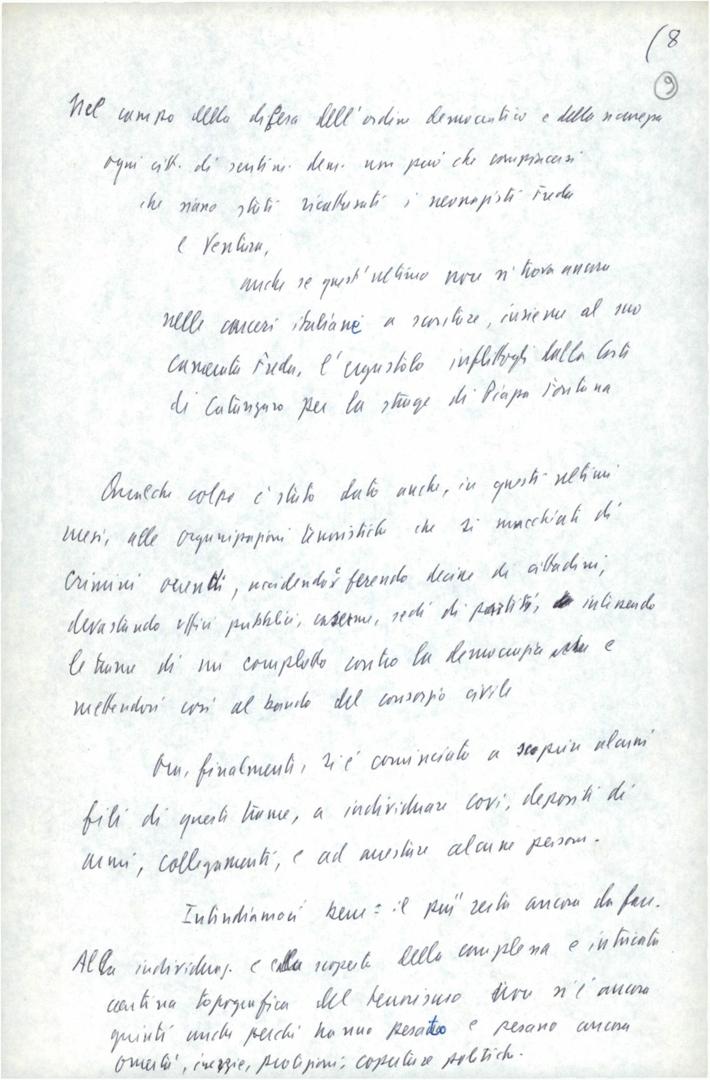 (8
9
Nel campo della difesa dell'ordine democratico e della sicurezza
ogni citt. di sentim. dem. non può che compiacersi
che siano stati ricatturati i neonazisti Freda
e Ventura,
anche se quest'ultimo non si trova ancora
nelle carceri italiane a scontare, insieme al suo
camerata Freda, l'ergastolo inflittogli dalla Corte
di Catanzaro per la strage di Piazza Fontana
Qualche colpo è stato dato anche, in questi ultimi
mesi, alle organizzazioni terroristiche che si macchiati di
crimini orrendi, uccidendo e ferendo decine di cittadini,
devastando uffici pubblici, caserme, sedi di partiti, intessendo
le trame di un complotto contro la democrazia e
mettendosi così al bando del consorzio civile
Ora, finalmente, si è cominciato a scoprire alcuni
fili di queste trame, a individuare covi, depositi di
armi, collegamenti, e ad arrestare alcune persone.
Intendiamoci bene: il più resta ancora da fare.
Alla individuaz. e alla scoperta della complessa e intricata
cartina topografica del terrorismo non si è ancora
giunti anche perché hanno pesato e pesano ancora
omertà, inerzie, protezioni, coperture politiche.